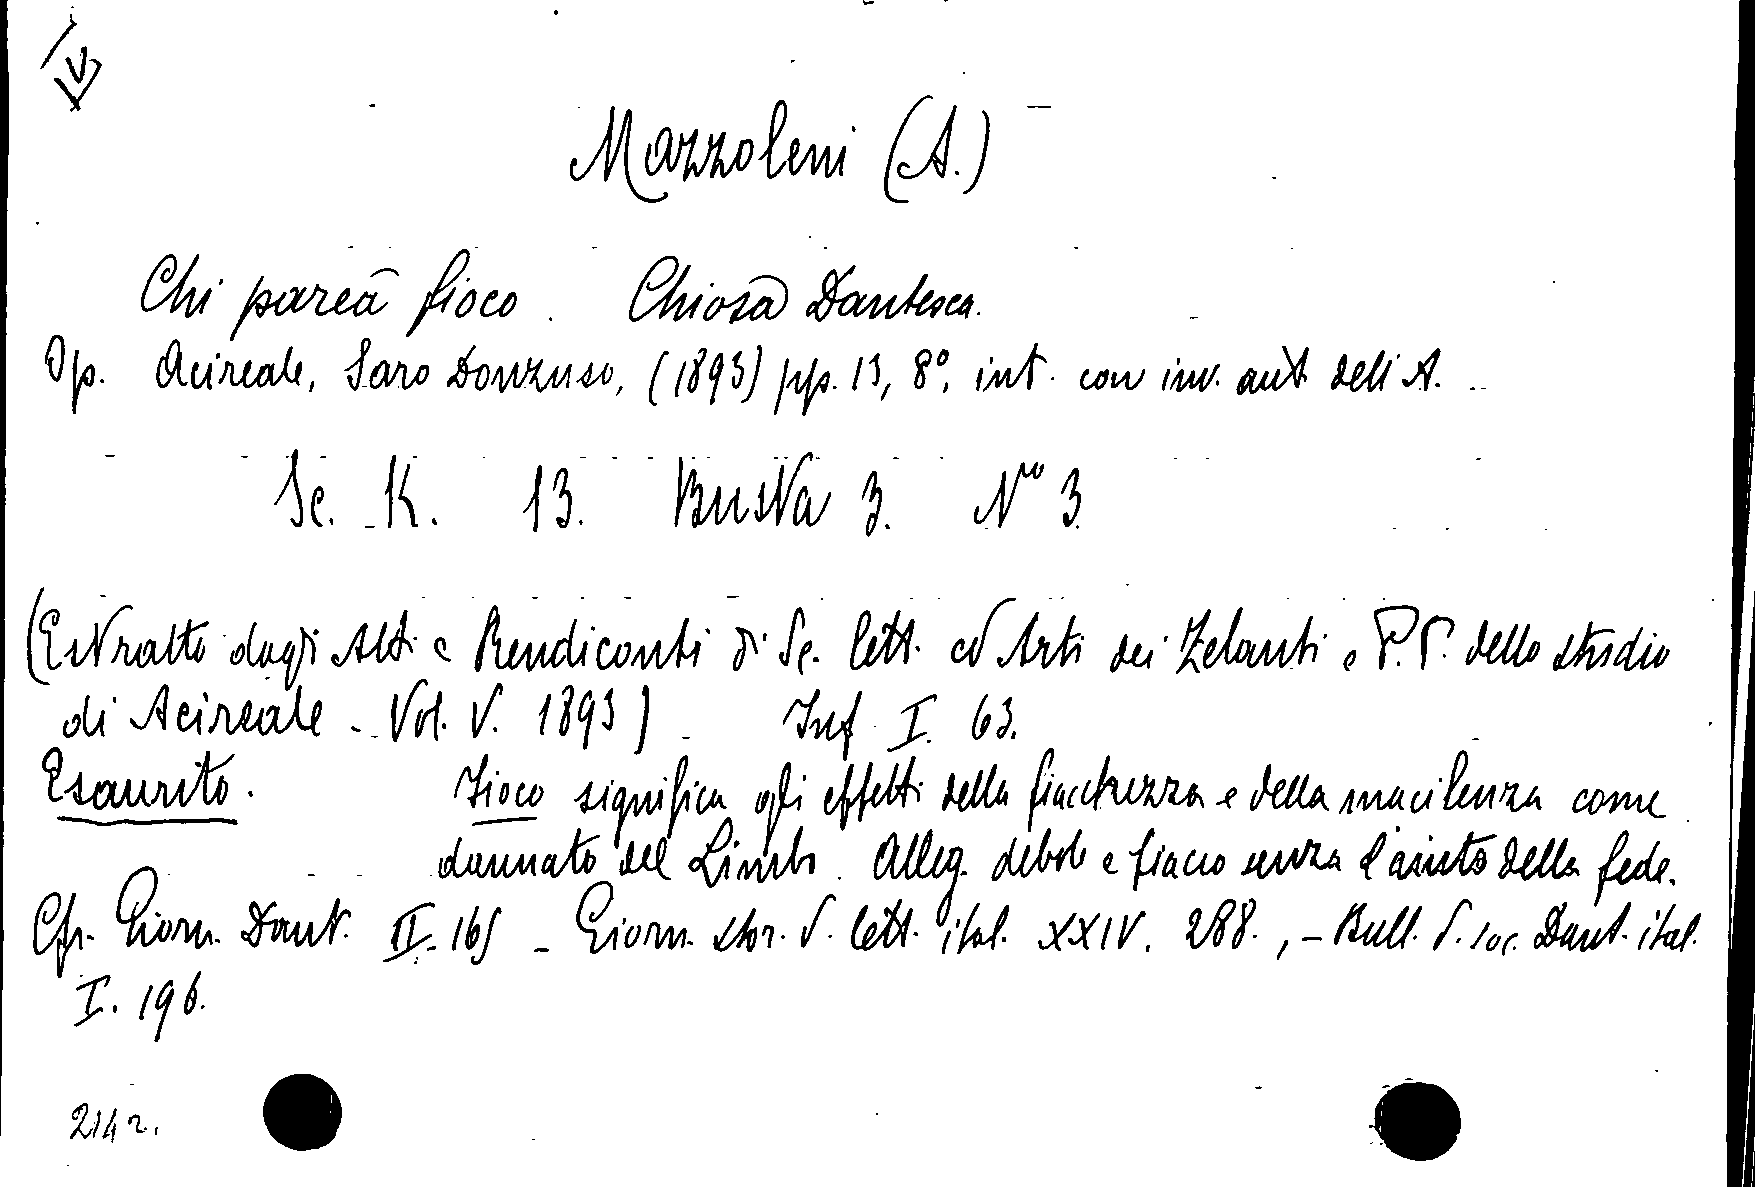 Mazzoleni (A.)
Chi parea fioco. Chiosa Dantesca.
Op. Acireale, Saro Donzuso, (1893) pp. 13, 8º, int. con inv. aut. dell'A.
Sc. K. 13. Busta 3. Nro 3
(Estratto dagli Atti e Rendiconti di Sc. lett. ed Arti dei Zelanti e P.P. dello studio
di Acireale - Vol. V. 1893) Inf I. 63.
Esaurito. Fioco significa gli effetti della fiacchezza e della macilenza come
dannato del Limbo. Alleg. debole e fiacco senza l'aiuto della fede.
Cfr. Giorn. Dant. II. 165 - Giorn. stor. d. lett. ital. XXIV. 288., - Bull. d. soc. Dant. ital.
I. 196.